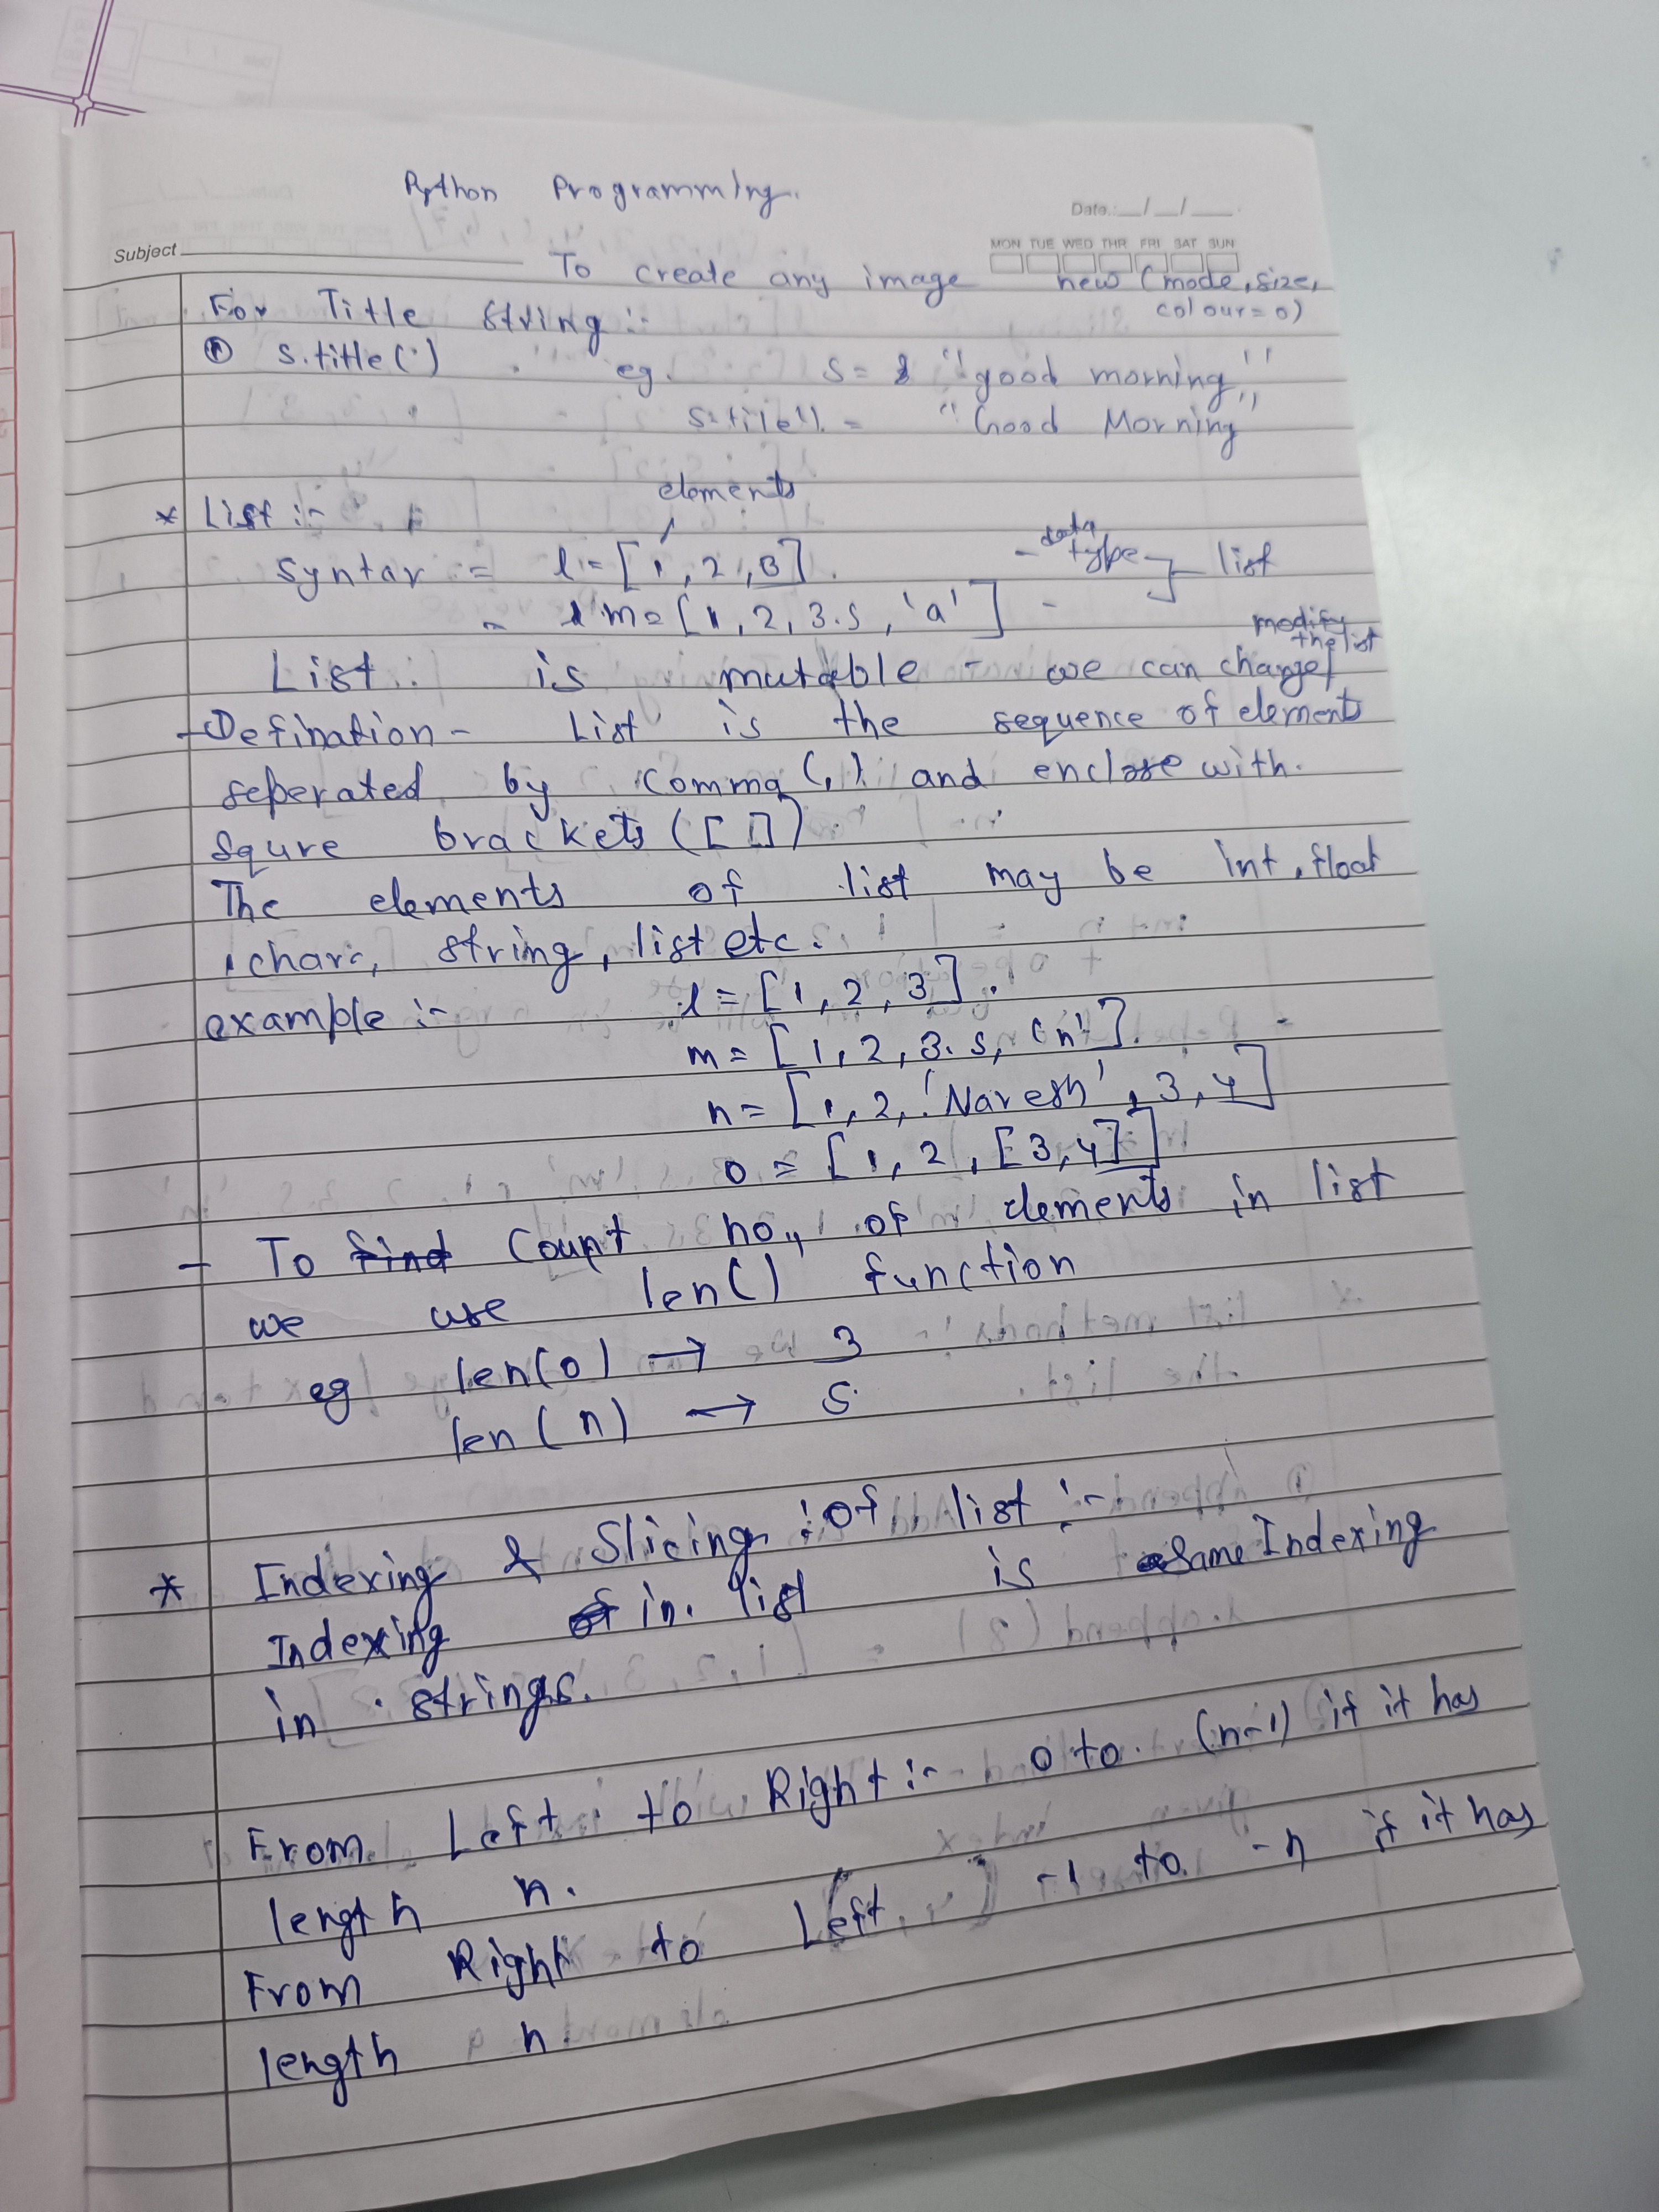 Python Programming.
Date.:__/__/___.
MON TUE WED THR FRI SAT SUN
Subject
To create any image new (mode, size,
colour=0)
For Title string :-
① s.title() eg. s = "good morning"
s.title() = "Good Morning"
* List :-
elements
syntax := l = [1, 2, 3]. - data type } list
= m = [1, 2, 3.5, 'a'] -
modify the list
List is mutable - we can change
- Defination - List is the sequence of elements
seperated by comma (,) and enclose with
squre brackets ([])
The elements of list may be int, float
, char, string, list etc.
example :- l = [1, 2, 3].
m = [1, 2, 3.5, 'n'].
n = [1, 2, 'Naresh', 3, 4]
o = [1, 2, [3, 4]]
- To find Count no., of elements in list
we use len() function
eg len(o) → 3
len(n) → 5
* Indexing & Slicing of list :-
Indexing of in list is same Indexing
in strings.
From Left to Right :- 0 to (n-1) if it has
length n.
From Right to Left, -1 to -n if it has
length n.